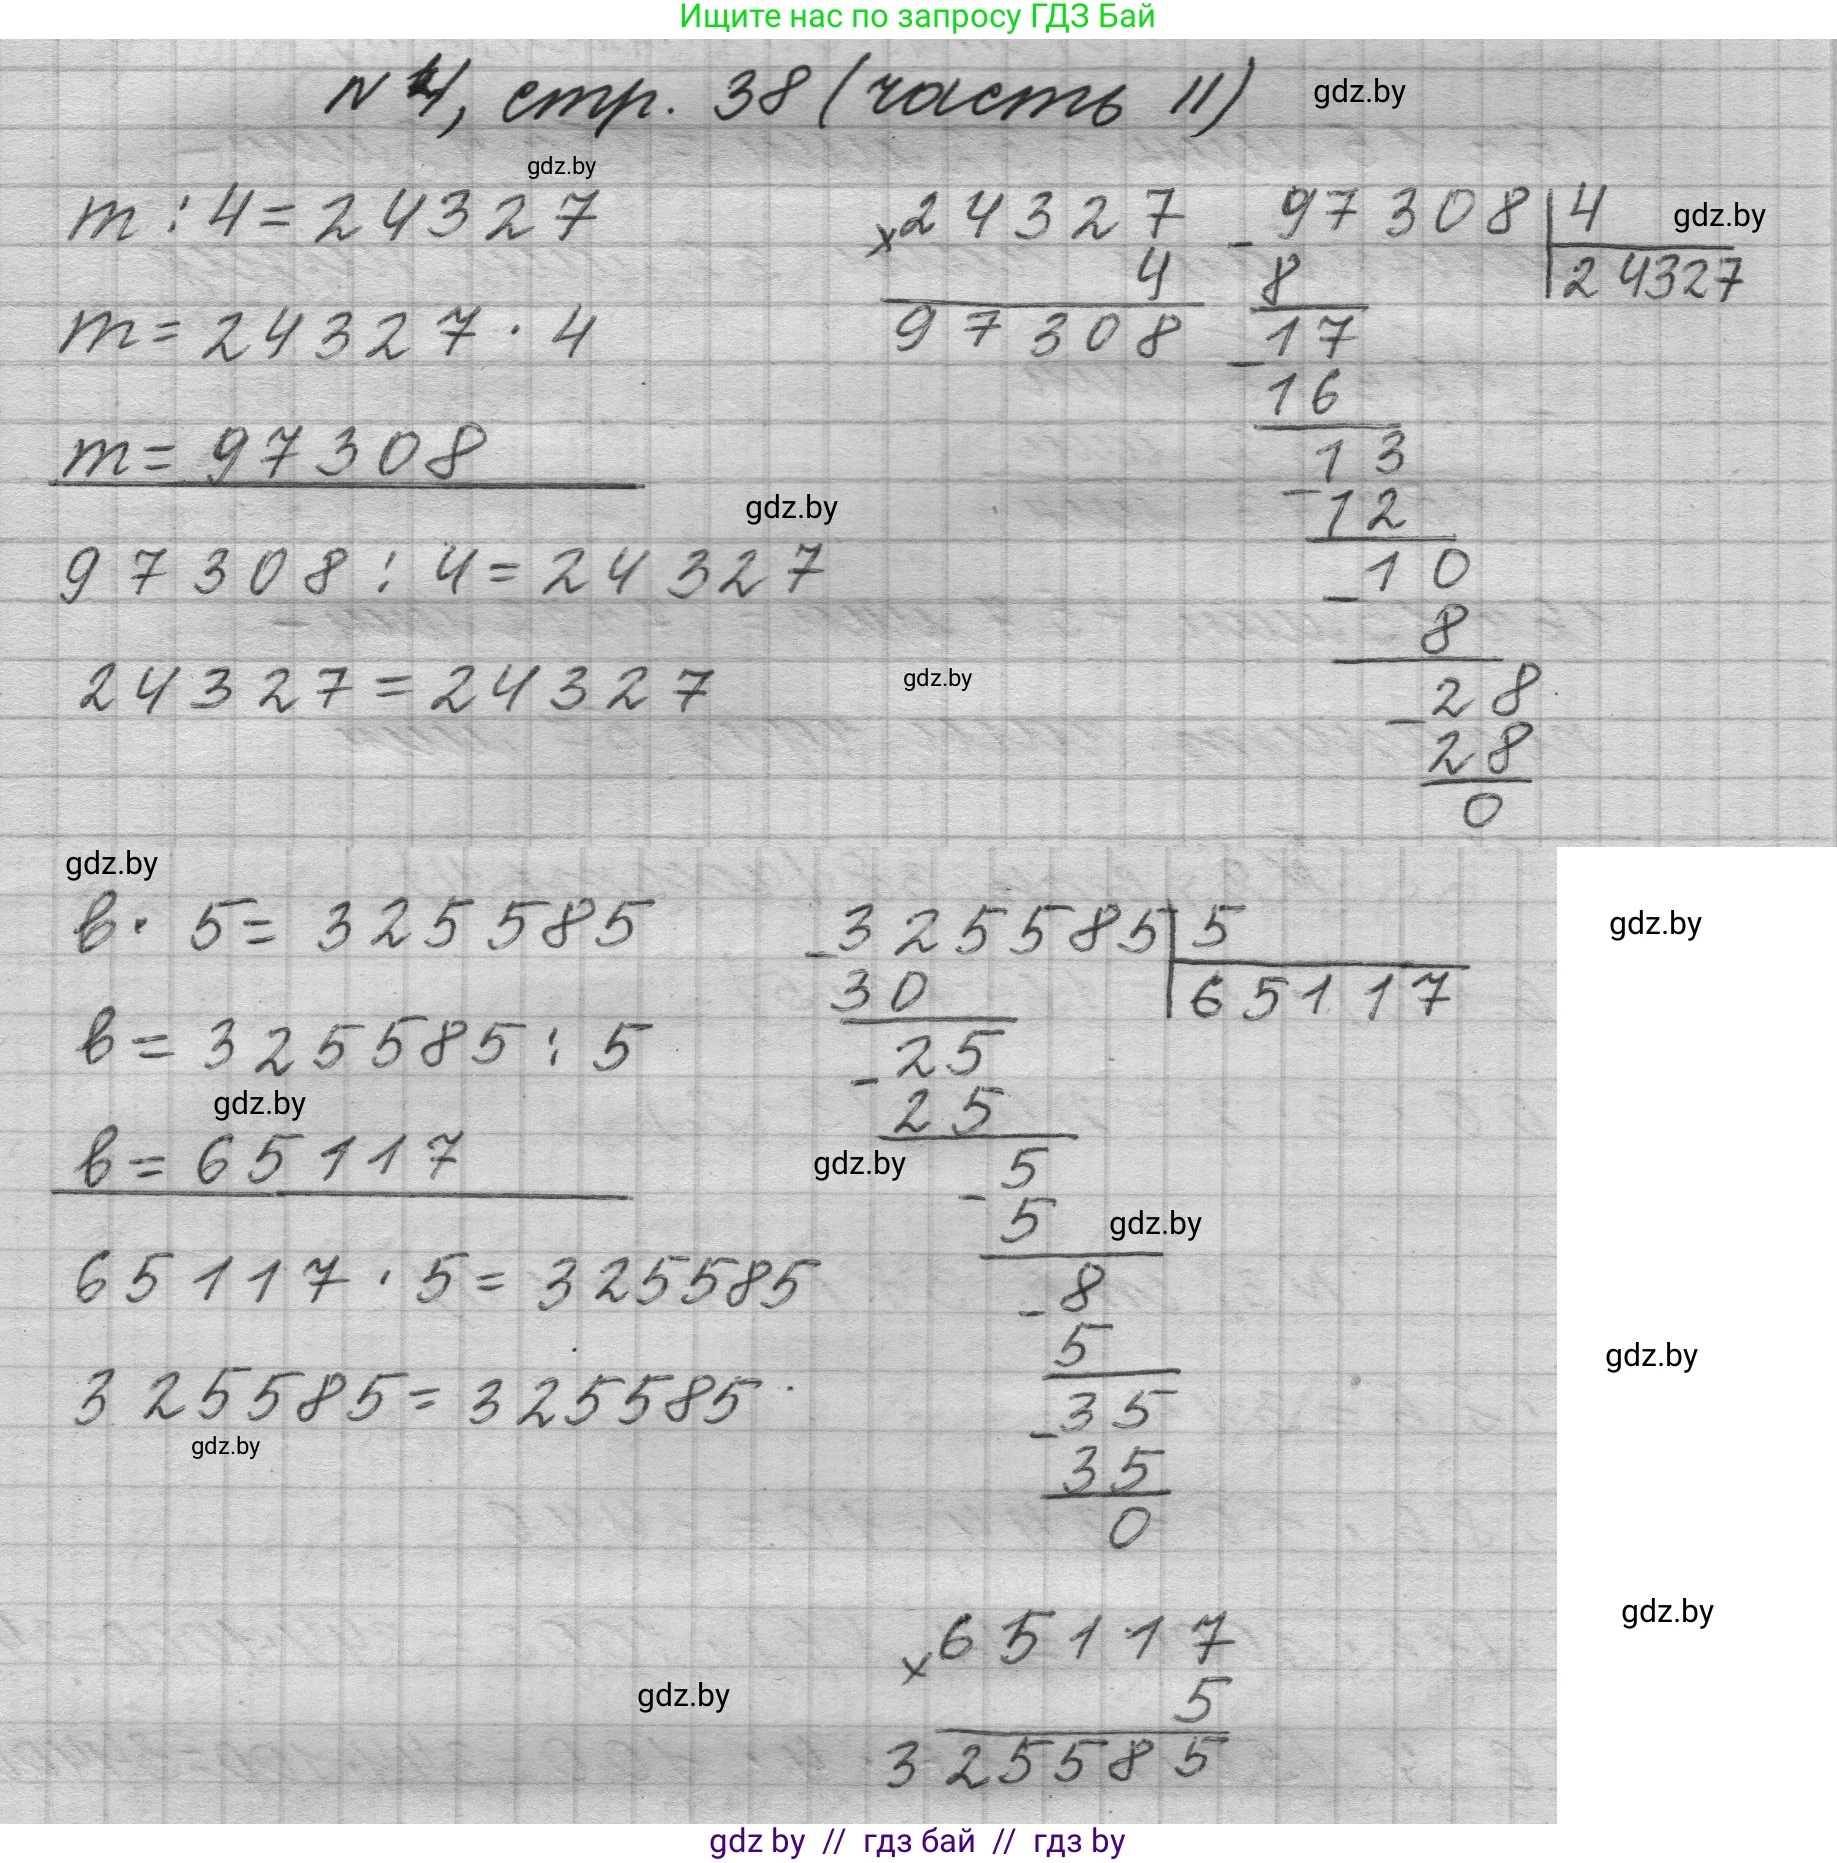 Ищите нас по запросу ГДЗ Бай
N 4, стр. 38 (часть II)
gdz.by
gdz.by
m : 4 = 24327
m = 24327 · 4
m = 97308
gdz.by
97308 : 4 = 24327
24327 = 24327
gdz.by
× 24327
4
97308
- 97308 | 4
gdz.by
8 | 24327
- 17
16
- 13
12
- 10
8
- 28
28
0
gdz.by
в · 5 = 325585
в = 325585 : 5
gdz.by
в = 65117
65117 · 5 = 325585
325585 = 325585
gdz.by
- 325585 | 5
gdz.by
30 | 65117
- 25
25
gdz.by
- 5
5
gdz.by
- 8
5
gdz.by
- 35
35
0
gdz.by
× 65117
5
gdz.by
325585
gdz by // гдз бай // гдз by